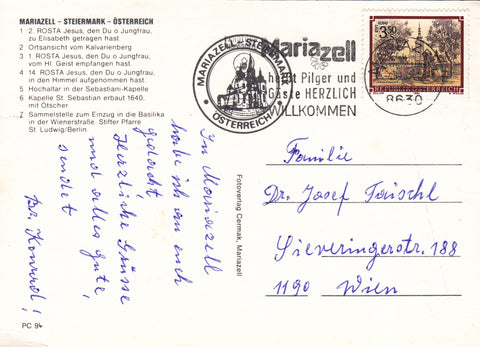 MARIAZELL – STEIERMARK – ÖSTERREICH
1 2. ROSTA Jesus, den Du o Jungfrau,
zu Elisabeth getragen hast
2 Ortsansicht vom Kalvarienberg
3 1. ROSTA Jesus, den Du o Jungfrau,
vom Hl. Geist empfangen hast
4 14 ROSTA Jesus, den Du o Jungfrau,
in den Himmel aufgenommen hast
5 Hochaltar in der Sebastiani-Kapelle
6 Kapelle St. Sebastian erbaut 1640,
mit Ötscher
7 Sammelstelle zum Einzug in die Basilika
in der Wienerstraße. Stifter Pfarre
St. Ludwig/Berlin.
In Mariazell
habe ich an euch
gedacht
Herzliche Grüsse
und alles Gute,
sendet
Br. Konrad!
PC 94
Fotoverlag Cermak, Mariazell
MARIAZELL - STEIERMARK
ÖSTERREICH
Mariazell
heißt Pilger und
Gäste HERZLICH
WILLKOMMEN
8630
S 3.50
REPUBLIK ÖSTERREICH
Familie
Dr. Josef Taischl
Sieveringerstr. 188
1190 Wien